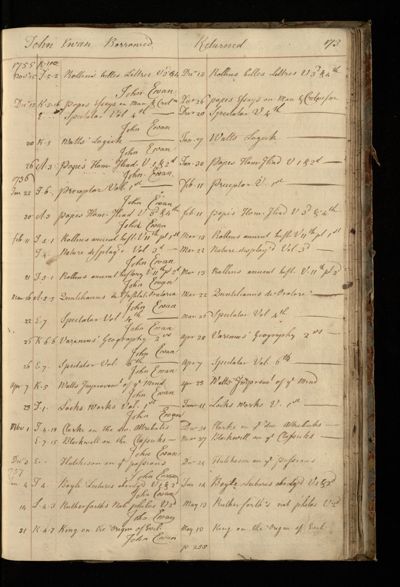 John Ewan Borrowed Returned 173
1755
Nov 15 I.5.2 Rollins belles Lettres V 3d & 4th Dec 12 Rollins belles Lettres V 3d & 4th
John Ewan
Dec 12 Popes Essays on Man & Dec 26 popes Essays on Man &
Spectator Vol. 4th Dec 20 Spectator V 4th
John Ewan
20 K.1 Watts Logick Jan. 27 Watts Logick
John Ewan
26 A.3 Popes Hom. Iliad. V 1 & 2d Jan. 20 Popes Hom. Iliad V 1 & 2d
1756 John Ewan
Jan 22 I.6. Preceptor Vol. 1st Feb. 11 Preceptor V. 1st
John Ewan
20 A.3 popes Hom. Iliad V 3d & 4th feb 11 popes Hom. Iliad V 3d & 4th
John Ewan
feb 11 I.2.1 Rollins ancient hist. V 11th pt 1st Mar 13 Rollins ancient hist. V 11th pt 1st
Nature display'd Vol. 3d Mar 22 Nature display'd Vol. 3d
John Ewan
21 I.2.1 Rollins ancient history V 11th pt 2d Mar 13 Rollins ancient hist. V 11th pt 2d
John Ewan
Mar 22 Quintilianus de Oratore
John Ewan
22 E.7 Spectator Vol. 4th Mar 26 Spectator Vol. 4th
John Ewan
25 K.6.6 Varenius' Geography 2 vs Apr 20 Varenius' Geography 2 vs
John Ewan
26 E.7. Spectator Vol. 6th Apr 7 Spectator Vol. 6th
John Ewan
Apr 7 K.5 Watts Improvemt of ye Mind Apr 28 Watts Improvt of ye Mind
John Ewan
29 I.1. Locks Works Vol. 1st Locks Works V. 1st
John Ewan
Nov 1 I.4.18 Clarke on the Attributes Clarke on ye Attributes
E.7.15 Blackwell on the Classicks Nov 27 Blackwell on ye Classicks
John Ewan
Dec 3 Hutchison on ye passions Dec 24 Hutchison on ye passions
John Ewan
Jan 4 I.4 Boyle Lectures abridg'd V 1 & 3d Jan 14 Boyle Lectures abridg'd V 1 & 3d
John Ewan
14 I.4.3 Rutherforths Nat. philos V 2d May 13 Rutherforth's nat philos V 2d
John Ewan
21 K.4.7 King on the Origin of Evil. May 10 King on the Origin of Evil
John Ewan
p 250